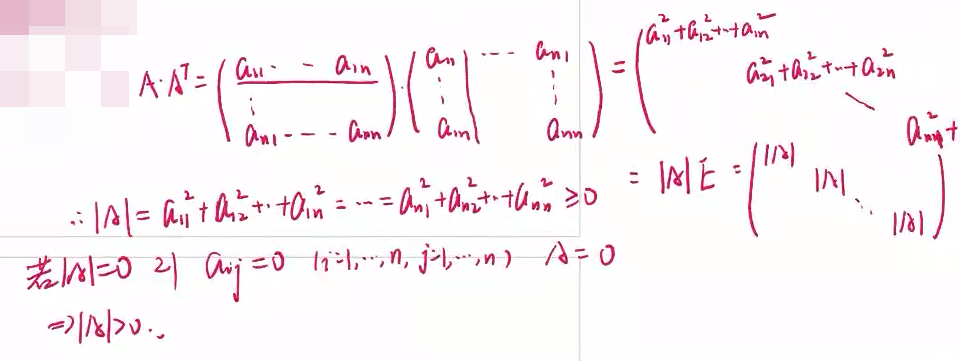 A·Aᵀ = (a₁₁ · - a₁ₙ ⋮ aₙ₁ - - - aₙₙ) · (a₁₁ ⋮ a₁ₙ ---- aₙ₁ ⋮ aₙₙ) = (a₁₁²+a₁₂²+··+a₁ₙ²
a₂₁²+a₂₂²+··+a₂ₙ²
= |A|E = (|A| |A| ⋱ |A|)
∴|A| = a₁₁²+a₁₂²+··+a₁ₙ² = ··· = aₙ₁²+aₙ₂²+··+aₙₙ² ≥0
若|A|=0 则 aᵢⱼ=0 (i=1,···,n, j=1,···,n) A=0
⇒|A|>0.